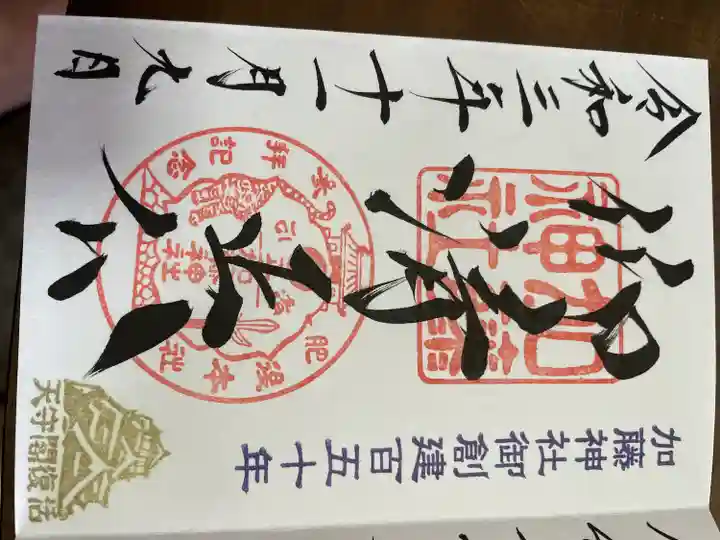 加藤神社御創建百五十年
清正公
加藤神社
参拝記念
令和三年十一月九日
天守閣復活